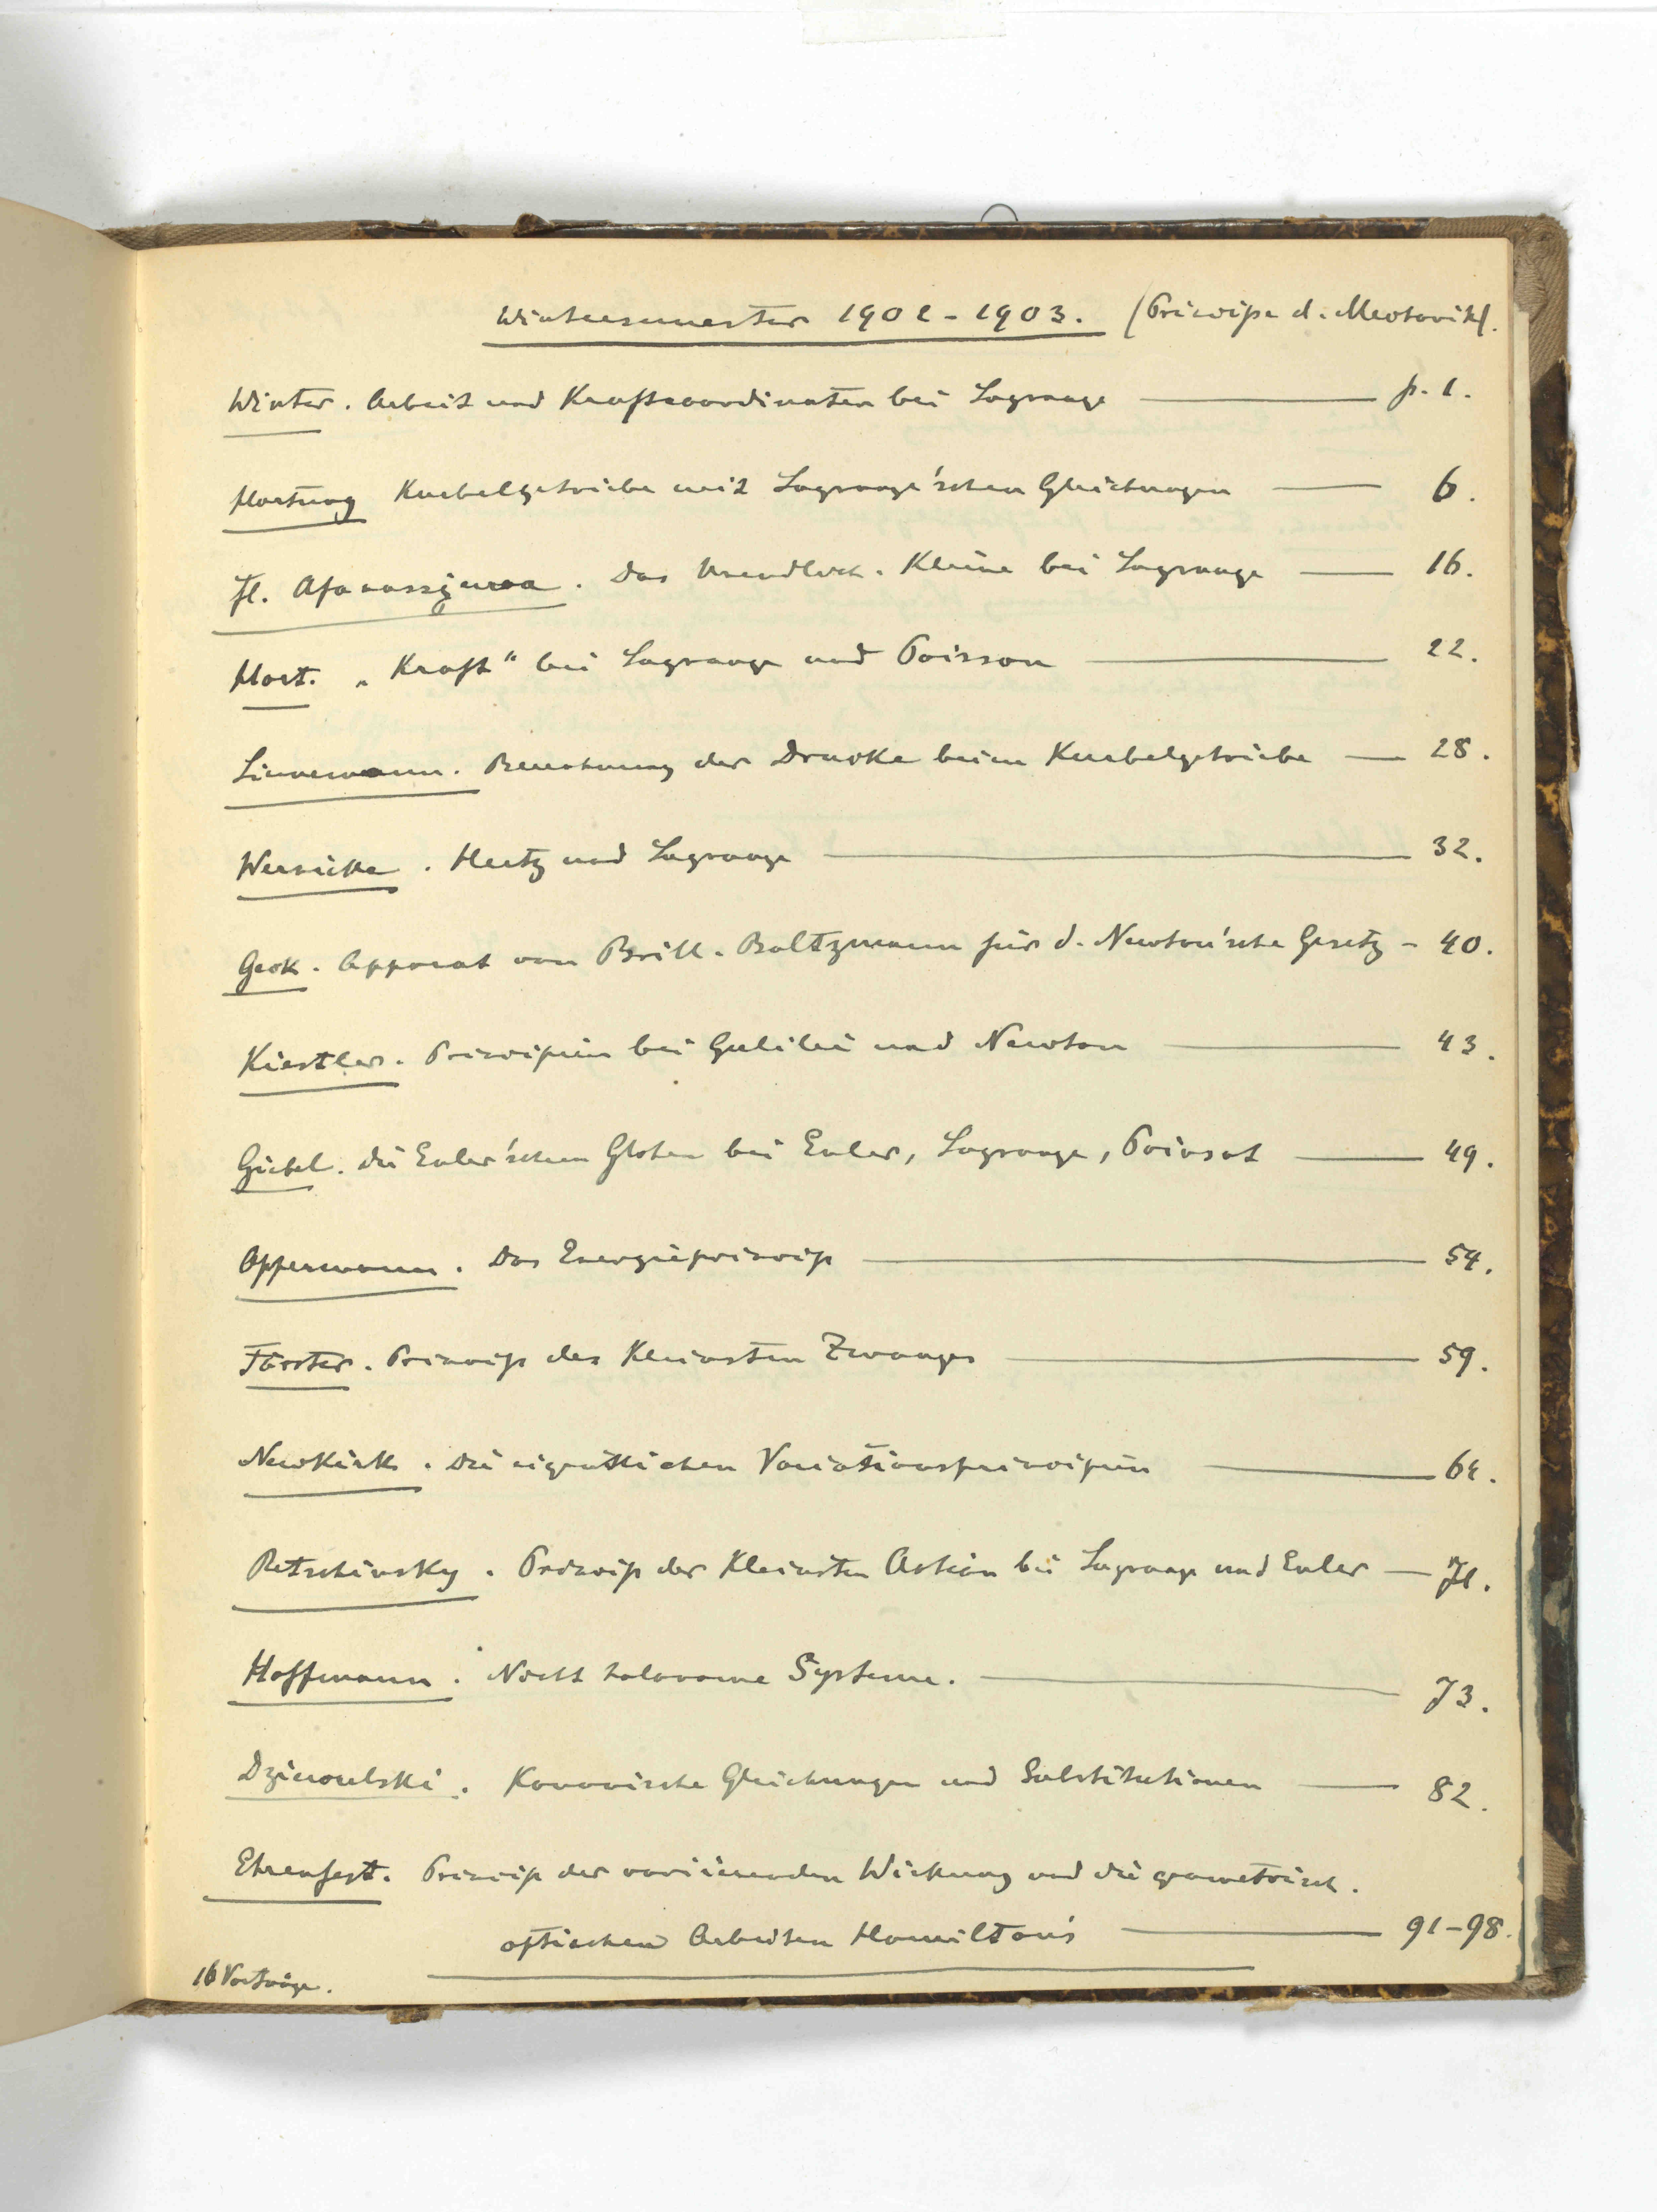 Wintersemester 1902-1903. (Principe d. Mechanik).
Winter. Arbeit und Kraftcoordinaten bei Lagrange p. 1.
Hartung Kurbelgetriebe mit Lagrange'schen Gleichungen 6.
Fl. Afanassjewa. Das Unendlich. Kleine bei Lagrange 16.
Hort. „Kraft“ bei Lagrange und Poisson 22.
Linnemann. Berechnung der Drucke beim Kurbelgetriebe 28.
Wernicke. Hertz und Lagrange 32.
Apparat von Brill-Boltzmann für d. Newton'sche Gesetz - 40.
Kistler. Principien bei Galilei und Newton 43.
Giebel. Die Euler'schen Glchen bei Euler, Lagrange, Poinsot 49.
Oppermann. Das Energieprincip 54.
Förster. Princip des Kleinsten Zwanges 59.
Newkirk. Die eigentlichen Variationsprincipien 64.
Retschinsky. Princip der Kleinsten Action bei Lagrange und Euler 71.
Hoffmann. Nicht holonome Systeme. 73.
Dziewulski. Kanonische Gleichungen und Substitutionen 82.
Ehrenfest. Princip der variierenden Wirkung und die geometrisch.
optischen Arbeiten Hamilton's 91-98.
16 Vorträge.